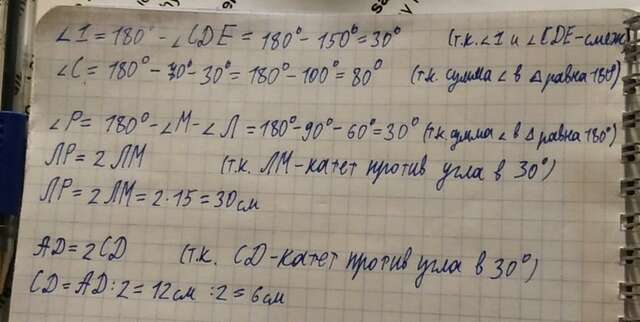 ∠1 = 180° - ∠CDE = 180° - 150° = 30° (т.к. ∠1 и ∠CDE - смеж
∠C = 180° - 70° - 30° = 180° - 100° = 80° (т.к. сумма ∠ в △ равна 180°)
∠P = 180° - ∠M - ∠Л = 180° - 90° - 60° = 30° (т.к. сумма ∠ в △ равна 180°)
ЛP = 2 ЛM (т.к. ЛM - катет против угла в 30°)
ЛP = 2 ЛM = 2 · 15 = 30 см
AD = 2CD (т.к. CD - катет против угла в 30°)
CD = AD : 2 = 12 см : 2 = 6 см